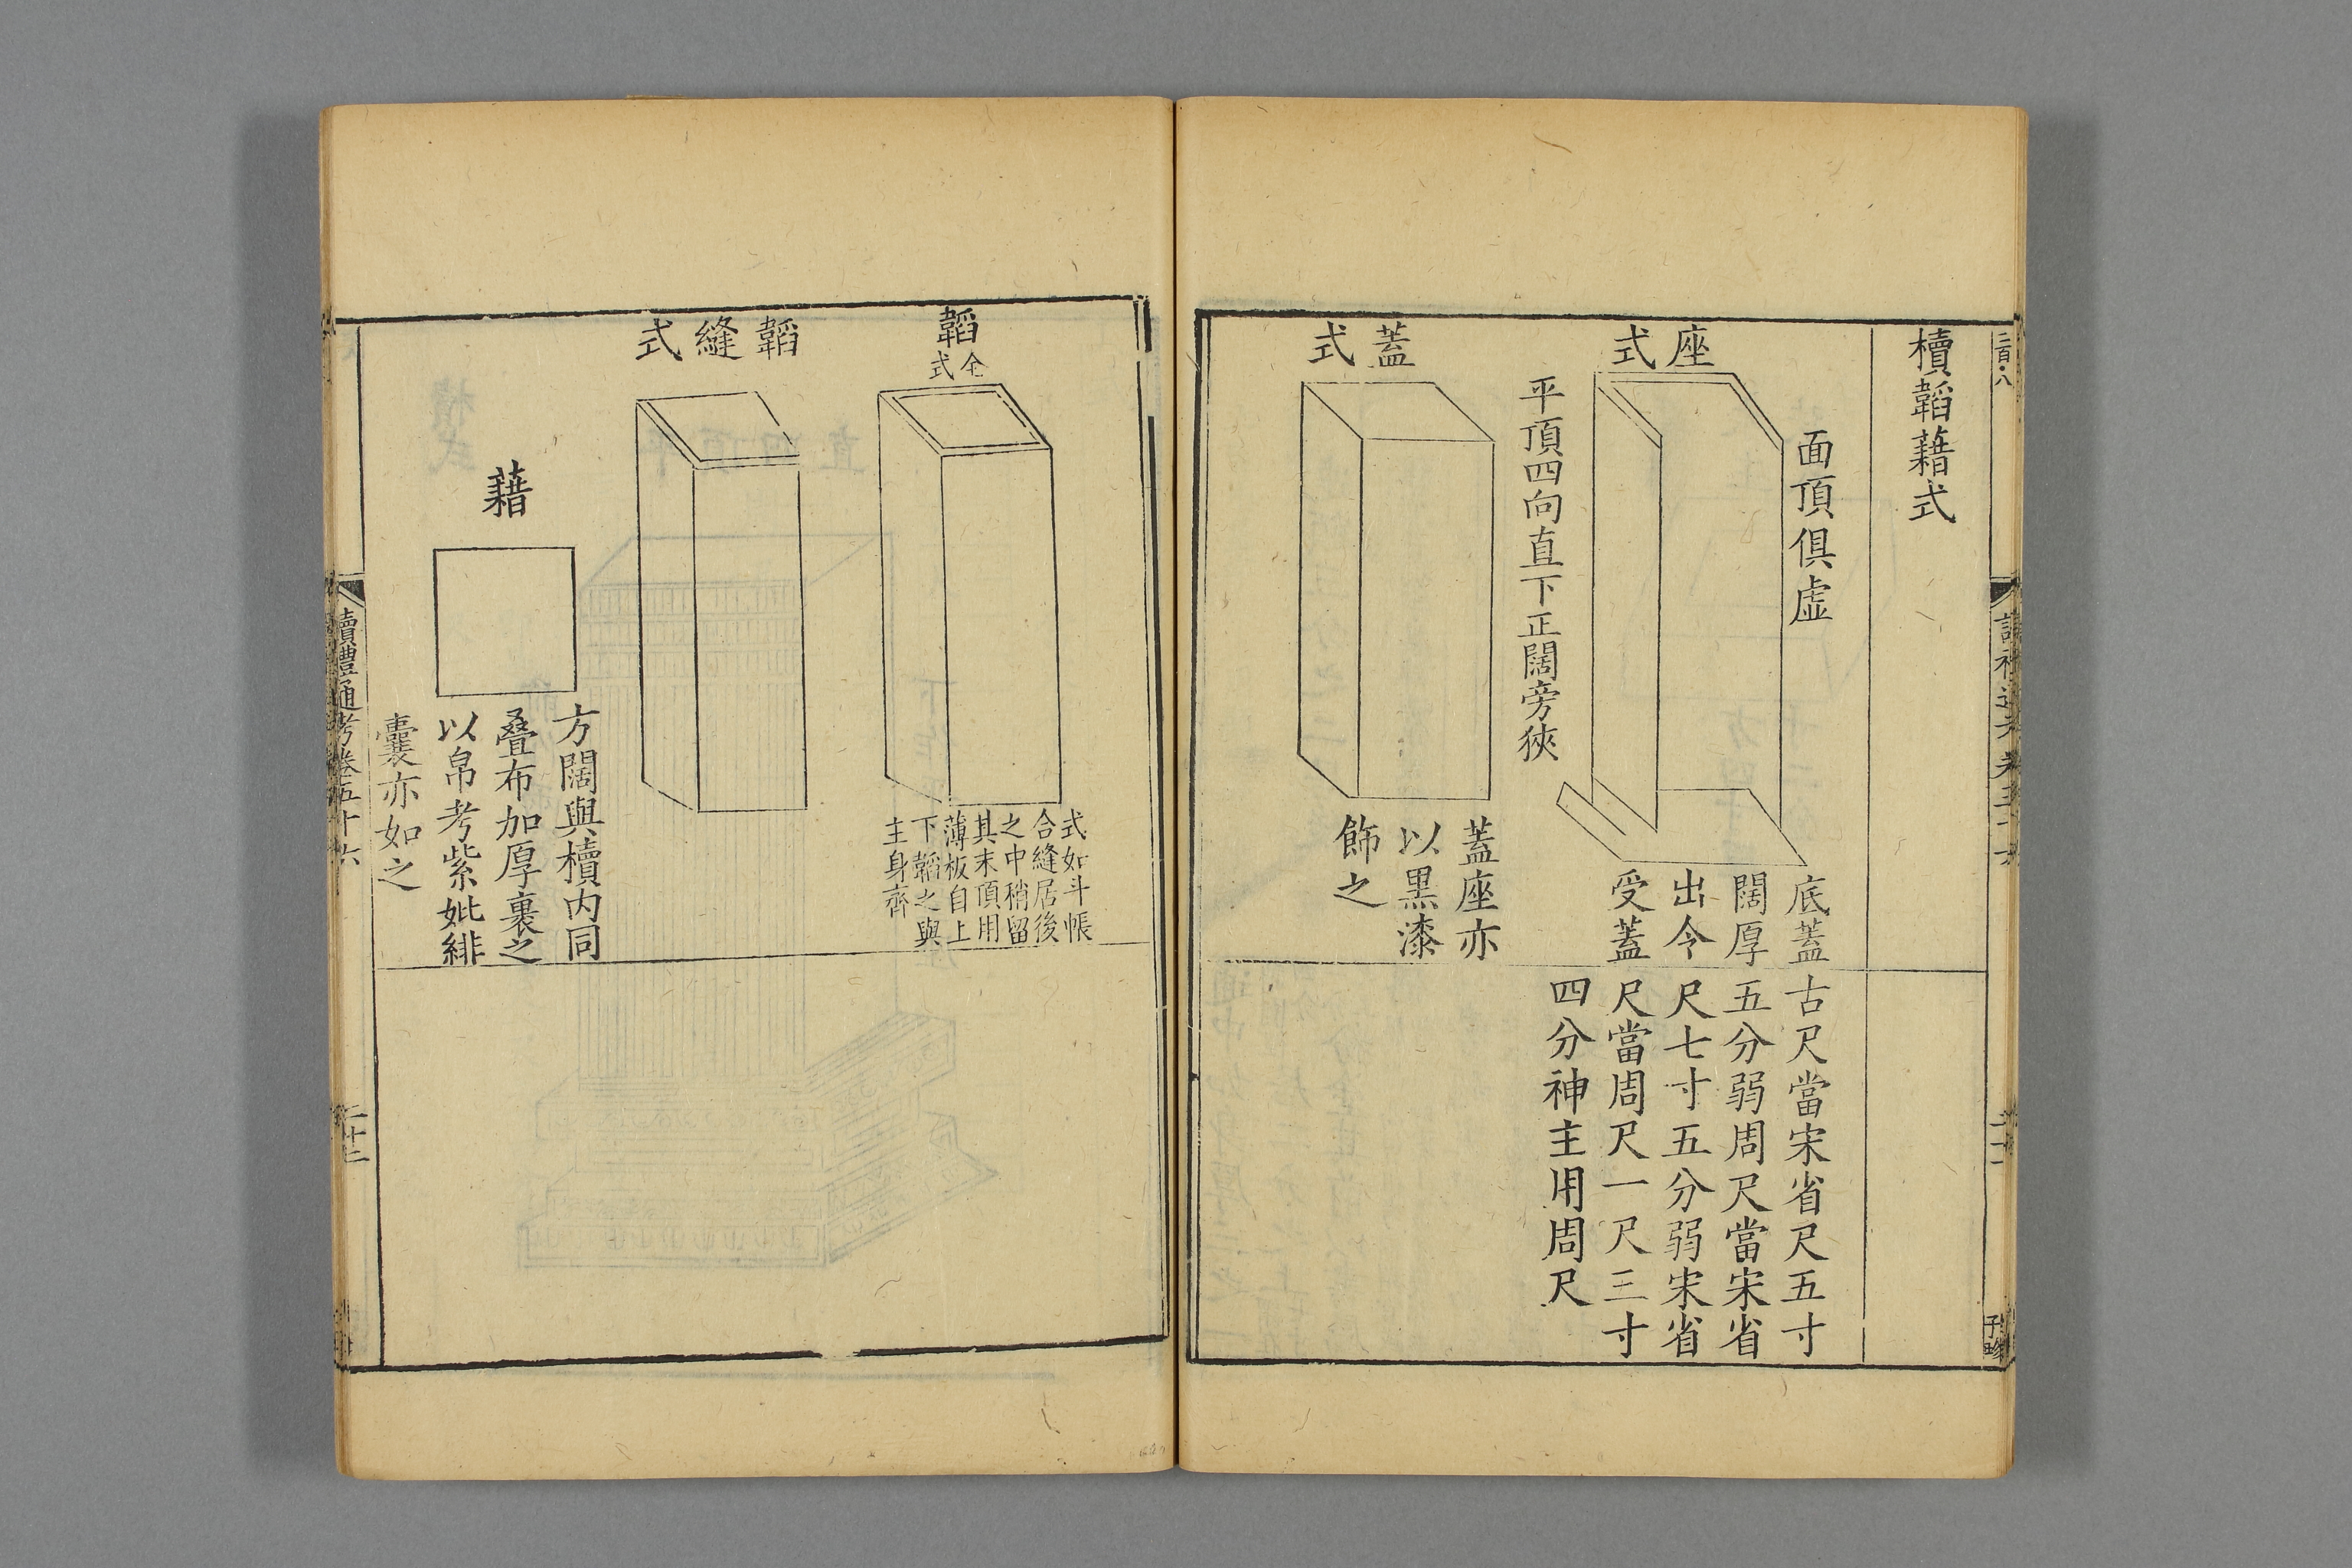 櫝韜藉式
座式
面頂俱虛
底蓋
闊厚
出令
受蓋
平頂四向直下正闊旁狹
蓋式
蓋座亦
以黑漆
飾之
古尺當宋省尺五寸
五分弱周尺當宋省
尺七寸五分弱宋省
尺當周尺一尺三寸
四分神主用周尺
韜
全式
式如斗帳
合縫居後
之中稍留
其末頂用
薄板自上
下韜之與
主身齊
韜縫式
藉
方闊與櫝内同
叠布加厚裹之
以帛考紫妣緋
囊亦如之
讀禮通考卷五十六